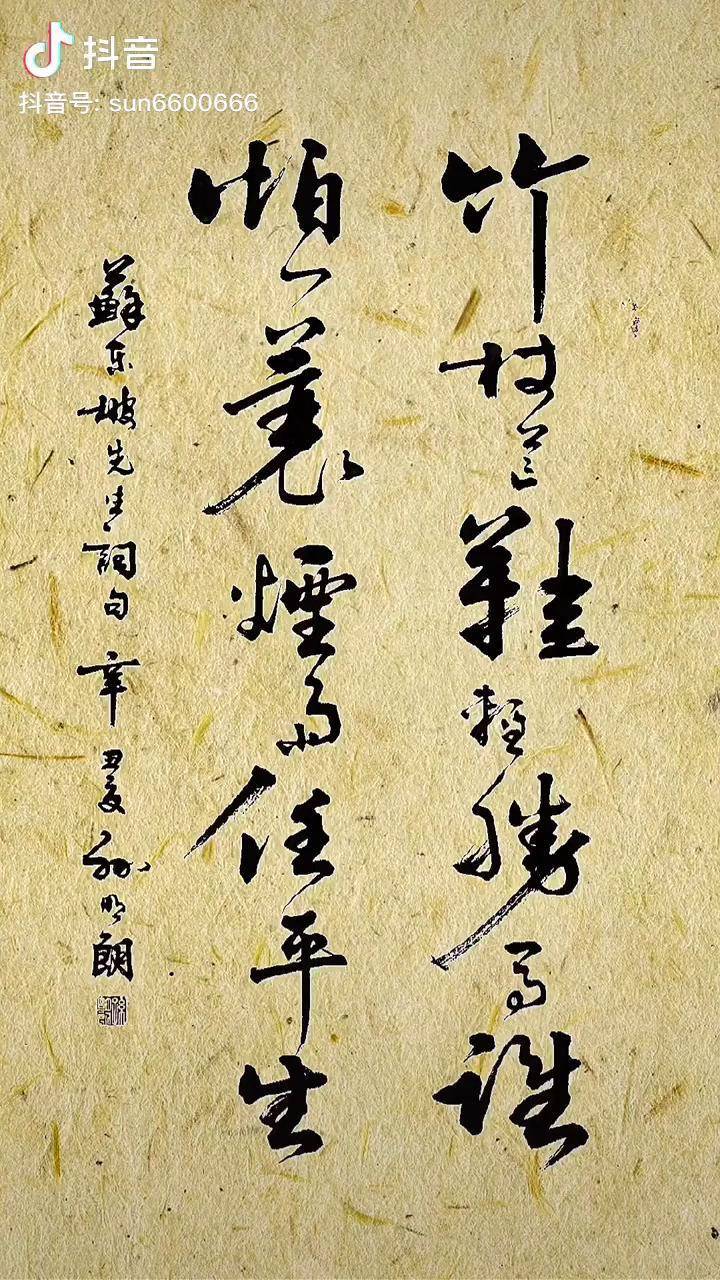 抖音
抖音号: sun6600666
竹杖芒鞋輕勝馬誰
怕一蓑煙雨任平生
蘇東坡先生詞句 辛丑夏 孫明朗